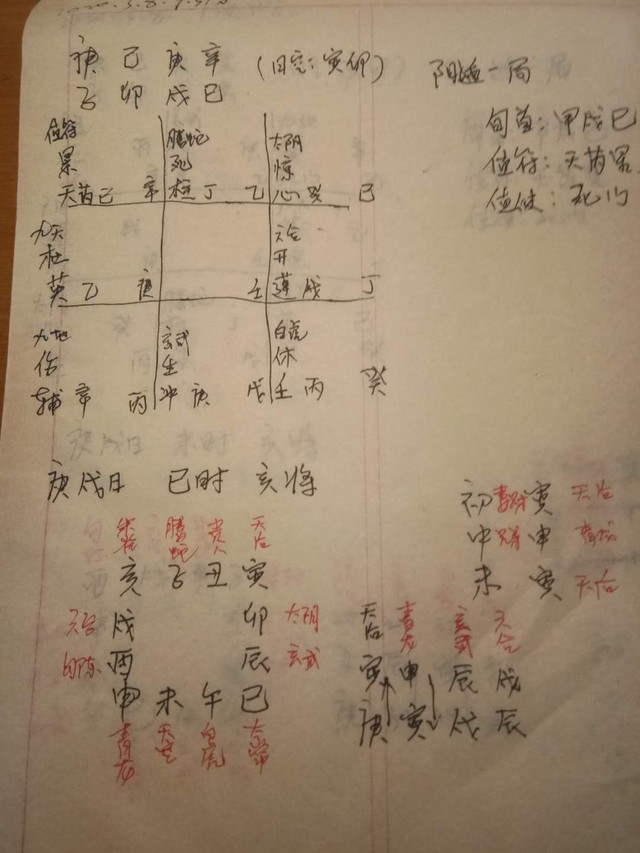 庚 己 庚 辛 (日空:寅卯) 阴遁一局
子 卯 戌 巳
旬首:甲戌己
值符:天芮
值使:死门
值符 螣蛇 太阴
死 惊
天芮己 辛 柱 丁 乙 心 癸 己
九天 六合
杜 开
英 乙 庚 壬 蓬 戊 丁
九地 玄武 白虎
伤 生 休
辅 辛 丙 冲 庚 戊 任 丙 癸
庚戌日 巳时 亥将
初 寅 天后
中 申 青龙
末 寅 天后
朱雀 螣蛇 贵人 天后
亥 子 丑 寅
六合 戌 卯 太阴
勾陈 酉 辰 玄武
申 未 午 巳
青龙 天空 白虎 太常
天后 青龙 玄武 六合
寅 申 辰 戌
庚 寅 戌 辰